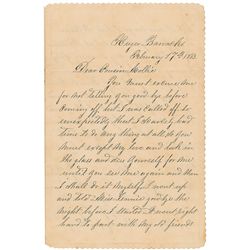 Barracks
February 17th 1883
Dear Cousin Mollie
You must excuse me
for not telling you good by before
coming off, but I was called off so
unexpectedly that I scarcely had
time to do any thing at all, so you
must except my love and look in
the glass and see yourself for me
until you see me again and then
I shall do it myself. I went up
and told Miss Jennie goodby the
night before I started I went right
hard to part with my old friends